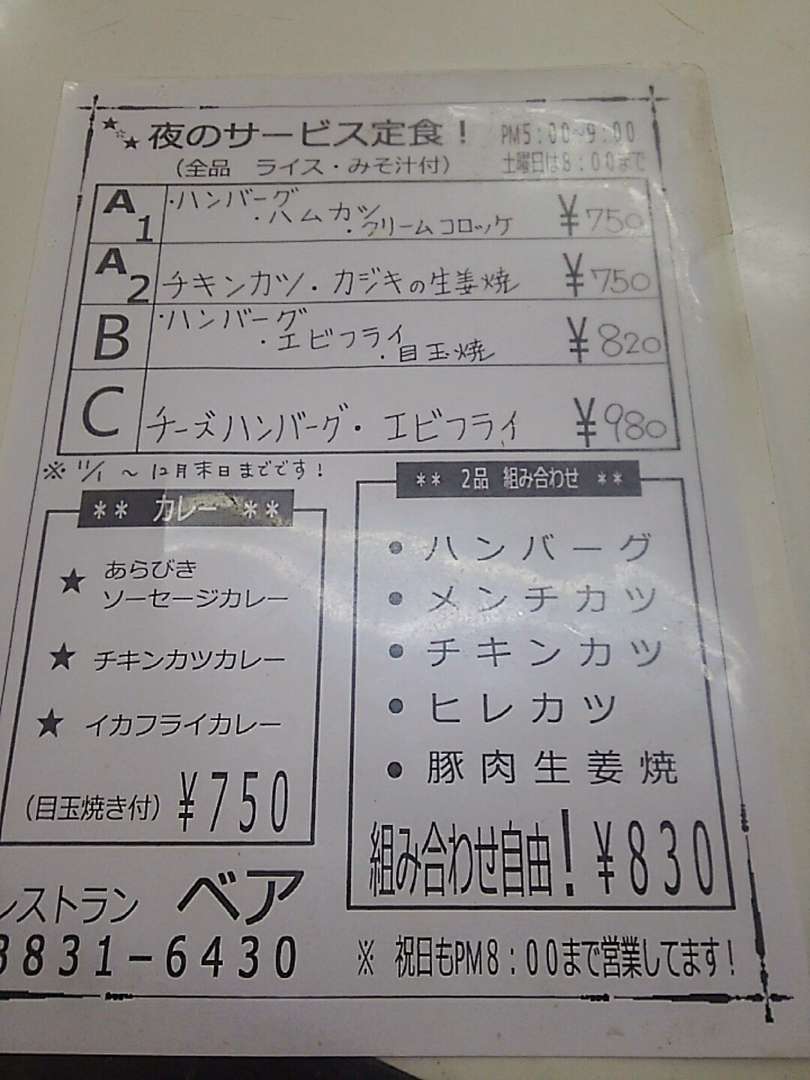 夜のサービス定食！ PM5:00~9:00
(全品 ライス・みそ汁付) 土曜日は8:00まで
A1 ・ハンバーグ ・ハムカツ ・クリームコロッケ ¥750
A2 チキンカツ・カジキの生姜焼 ¥750
B ・ハンバーグ ・エビフライ ・目玉焼 ¥820
C チーズハンバーグ・エビフライ ¥980
※ 11/1 ～12月末日までです！
** カレー **
★ あらびき
ソーセージカレー
★ チキンカツカレー
★ イカフライカレー
(目玉焼き付) ¥750
** 2品 組み合わせ **
● ハンバーグ
● メンチカツ
● チキンカツ
● ヒレカツ
● 豚肉生姜焼
組み合わせ自由！¥830
レストラン ベア
3831-6430
※ 祝日もPM8：00まで営業してます！